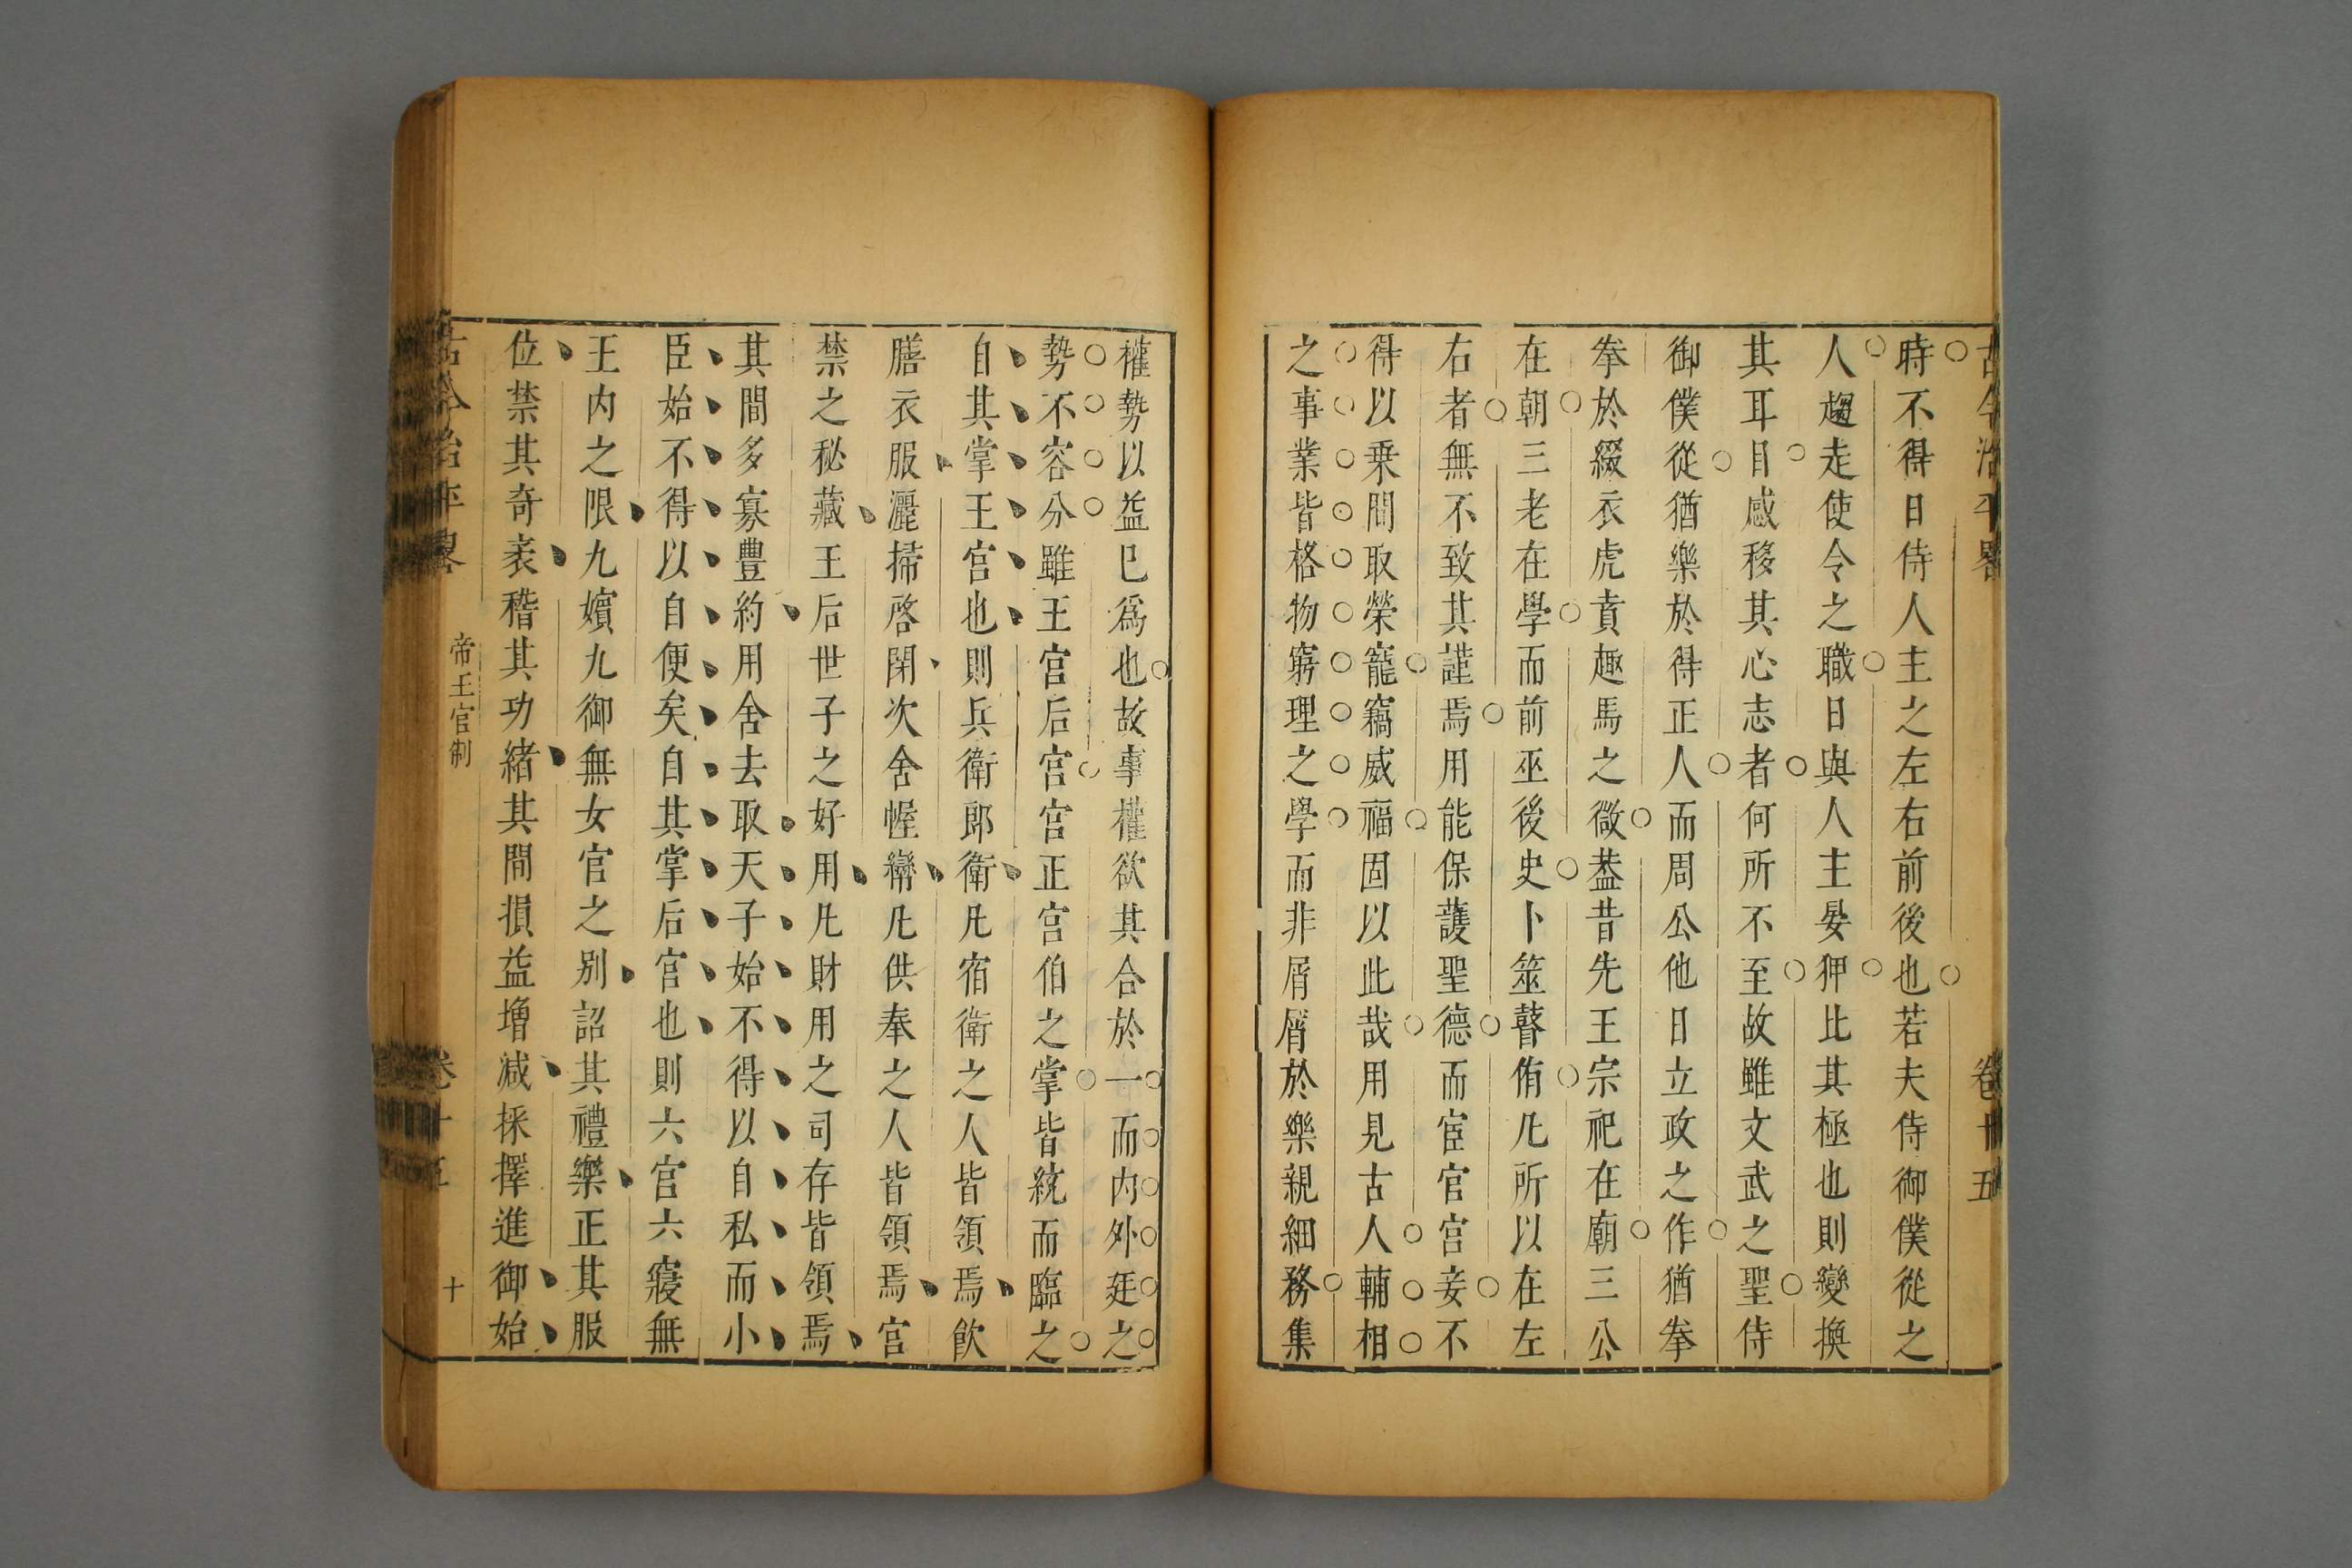 古今治平畧 卷十五
時不得日侍人主之左右前後也若夫侍御僕從之
人趨走使令之職日與人主晏狎比其極也則變換
其耳目感移其心志者何所不至故雖文武之聖侍
御僕從猶樂於得正人而周公他日立政之作猶拳
拳於綴衣虎賁趣馬之微葢昔先王宗祀在廟三公
在朝三老在學而前巫後史卜筮瞽侑凢所以在左
右者無不致其謹焉用能保護聖德而宦官宮妾不
得以乗間取榮寵竊威福固以此哉用見古人輔相
之事業皆格物窮理之學而非屑屑於樂親細務集
權勢以益巳爲也故事權欲其合於一而内外廷之
勢不容分雖王宮后宮宮正宮伯之掌皆統而臨之
自其掌王宮也則兵衛郎衛凢宿衛之人皆領焉飲
膳衣服灑掃啓閉次舍幄帟凢供奉之人皆領焉宮
禁之秘藏王后世子之好用凢財用之司存皆領焉
其間多寡豐約用舍去取天子始不得以自私而小
臣始不得以自便矣自其掌后宮也則六宮六寢無
王内之限九嬪九御無女官之別詔其禮樂正其服
位禁其奇袤稽其功緒其間損益增減採擇進御始
古今治平畧 帝王官制 卷十五 十